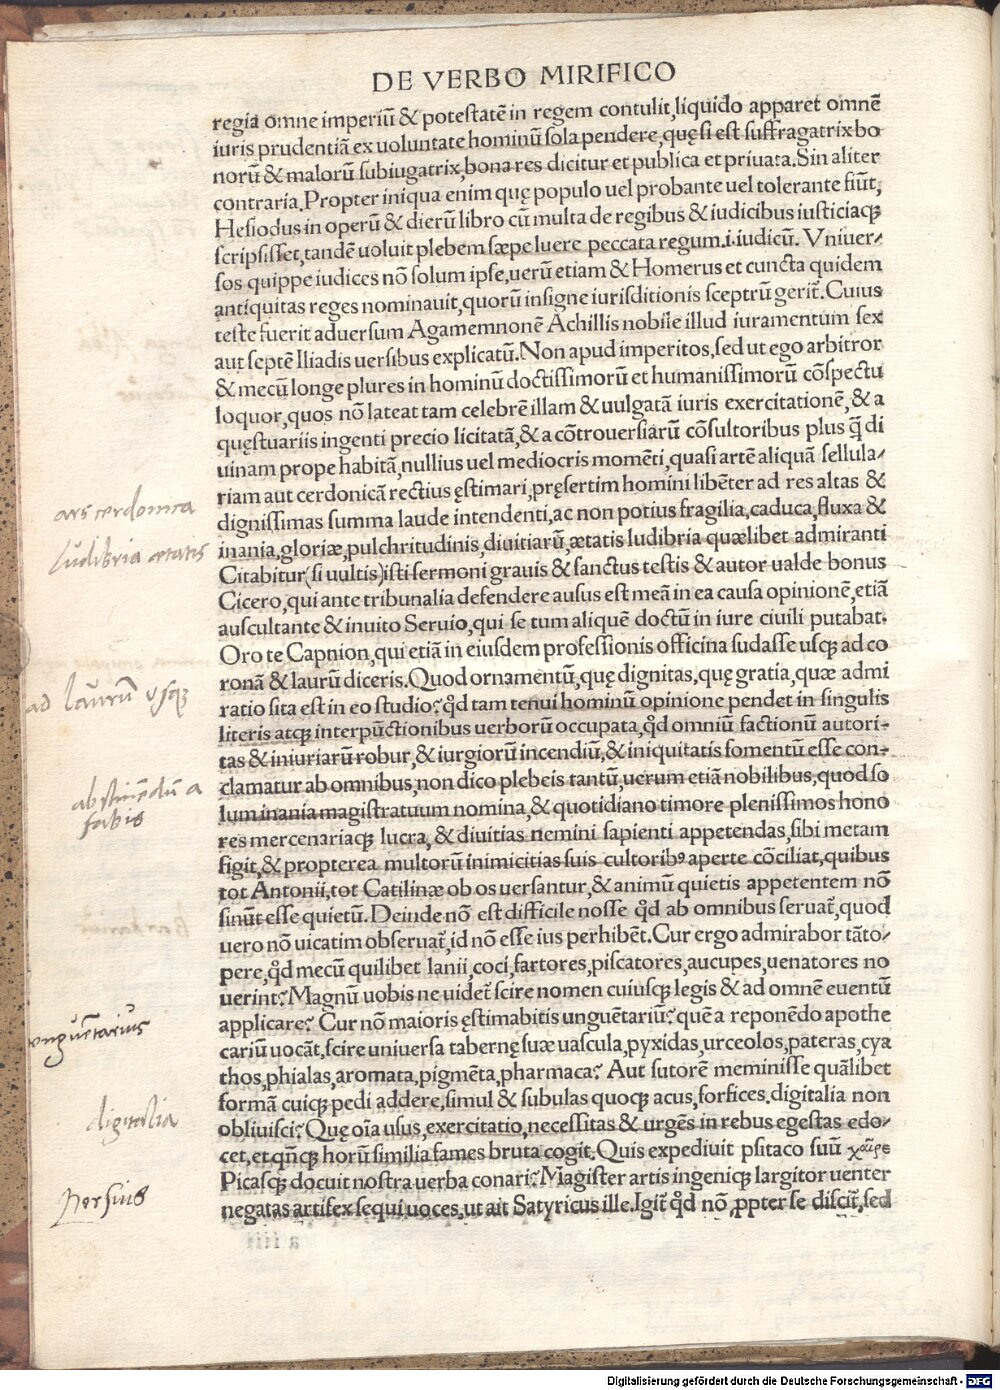 DE VERBO MIRIFICO
regia omne imperiū & potestatē in regem contulit, liquido apparet omnē
iuris prudentiā ex uoluntate hominū sola pendere, quę si est suffragatrix bo
norū & malorū subiugatrix, bona res dicitur et publica et priuata. Sin aliter
contraria. Propter iniqua enim quę populo uel probante uel tolerante fiūt,
Hesiodus in operū & dierū libro cū multa de regibus & iudicibus iusticiaqꝫ
scripsisset, tandē uoluit plebem sæpe luere peccata regum .i. iudicū. Vniuer⸗
sos quippe iudices nō solum ipse, uerū etiam & Homerus et cuncta quidem
antiquitas reges nominauit, quorū insigne iurisditionis sceptrū gerit̄. Cuius
teste fuerit aduersum Agamemnonē Achillis nobile illud iuramentum sex
aut septē Iliadis uersibus explicatū. Non apud imperitos, sed ut ego arbitror
& mecū longe plures in hominū doctissimorū et humanissimorū cōspectu
loquor, quos nō lateat tam celebrē illam & uulgatā iuris exercitationē, & a
quęstuariis ingenti precio licitatā, & a cōtrouersiarū cōsultoribus plus q̄̄ di
uinam prope habitā, nullius uel mediocris momēti, quasi artē aliquā sellula⸗
riam aut cerdonicā rectius ęstimari, pręsertim homini libēter ad res altas &
dignissimas summa laude intendenti, ac non potius fragilia, caduca, fluxa &
inania, gloriæ, pulchritudinis, diuitiarū, ætatis ludibria quælibet admiranti
Citabitur (si uultis) isti sermoni grauis & sanctus testis & autor ualde bonus
Cicero, qui ante tribunalia defendere ausus est meā in ea causa opinionē, etiā
auscultante & inuito Seruio, qui se tum aliquē doctū in iure ciuili putabat.
Oro te Capnion, qui etiā in eiusdem professionis officina sudasse usqꝫ ad co
ronā & laurū diceris. Quod ornamentū, quę dignitas, quę gratia, quæ admi
ratio sita est in eo studio? qd̄ tam tenui hominū opinione pendet in singulis
literis atqꝫ interpūctionibus uerborū occupata, qd̄ omniū factionū autori⸗
tas & iniuriarū robur, & iurgiorū incendiū, & iniquitatis fomentū esse con⸗
clamatur ab omnibus, non dico plebeis tantū, uerum etiā nobilibus, quod so
lum inania magistratuum nomina, & quotidiano timore plenissimos hono
res mercenariaqꝫ lucra, & diuitias nemini sapienti appetendas, sibi metam
figit, & propterea multorū inimicitias suis cultoribꝰ aperte cōciliat, quibus
tot Antonii, tot Catilinæ ob os uersantur, & animū quietis appetentem nō
sinūt esse quietū. Deinde nō est difficile nosse qd̄ ab omnibus seruat̄, quod
uero nō uicatim obseruat̄, id nō esse ius perhibēt. Cur ergo admirabor tāto⸗
pere, qd̄ mecū quilibet lanii, coci, fartores, piscatores, aucupes, uenatores no
uerint? Magnū uobis ne uidet̄ scire nomen cuiusqꝫ legis & ad omnē euentū
applicare? Cur nō maioris ęstimabitis unguētariū? quē a reponēdo apothe
cariū uocāt, scire uniuersa tabernę suæ uascula, pyxidas, urceolos, pateras, cya
thos, phialas, aromata, pigmēta, pharmaca? Aut sutorē meminisse quālibet
formā cuiqꝫ pedi addere, simul & subulas quoqꝫ acus, forfices, digitalia non
obliuisci? Quę oīa usus, exercitatio, necessitas & urgēs in rebus egestas edo⸗
cet, et qn̄cqꝫ horū similia fames bruta cogit. Quis expediuit psitaco suū χαῖρε
Picasqꝫ docuit nostra uerba conari? Magister artis ingeniqꝫ largitor uenter
negatas artifex sequi uoces, ut ait Satyricus ille. Igit̄ qd̄ nō ꝓpter se discit̄, sed
ars cerdonica
Ludibria ætatis
ad laurū usqꝫ
abstinēdū a
fabis
unguētarius
digitalia
Persius
Digitalisierung gefördert durch die Deutsche Forschungsgemeinschaft - DFG